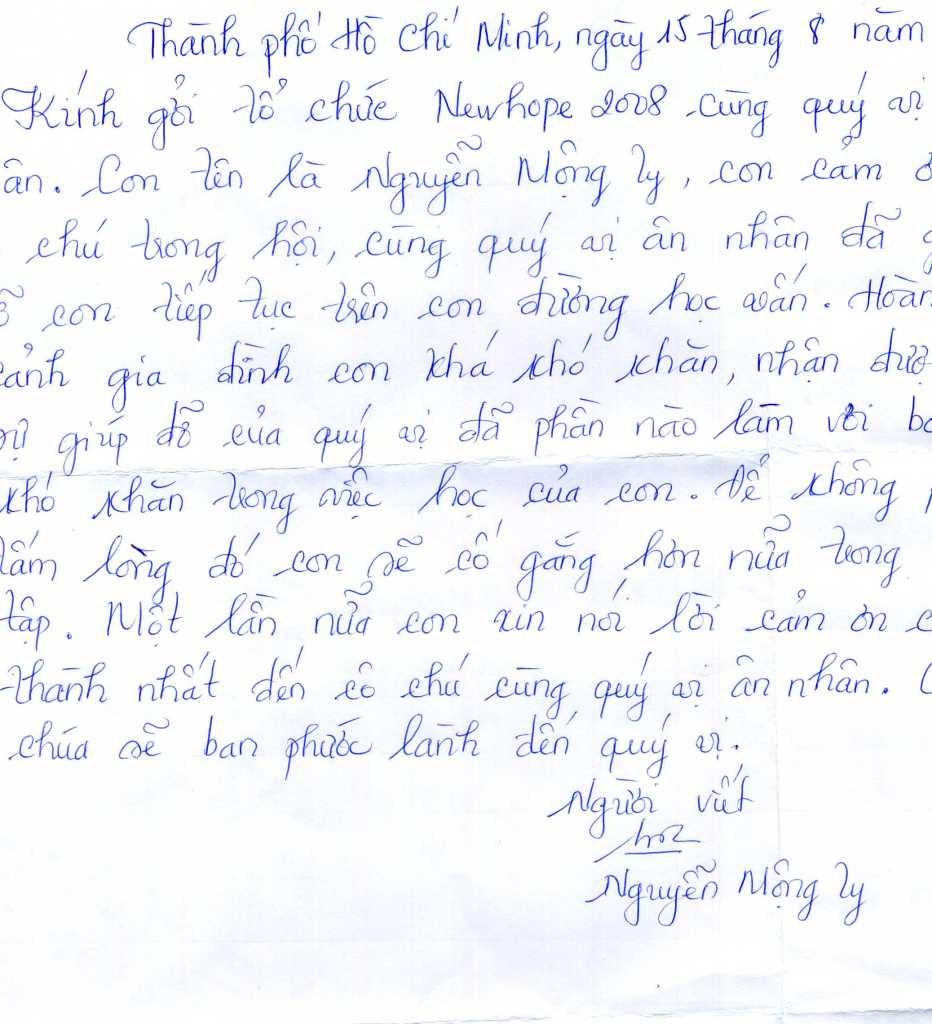 Thành phố Hồ Chí Minh, ngày 15 tháng 8 năm
Kính gởi tổ chức Newhope 2008 cùng quý vị
ân. Con tên là Nguyễn Mộng Ly, con cảm ơ
chú trong hội, cùng quý vị ân nhân đã g
ỡ con tiếp tục trên con đường học vấn. Hoàn
cảnh gia đình con khá khó khăn, nhận đượ
sự giúp đỡ của quý vị đã phần nào làm vơi bớ
khó khăn trong việc học của con. Để không p
tấm lòng đó con sẽ cố gắng hơn nữa trong
tập. Một lần nữa con xin nói lời cảm ơn c
thành nhất đến cô chú cùng quý vị ân nhân. C
chúa sẽ ban phước lành đến quý vị.
Người viết
Nguyễn Mộng Ly